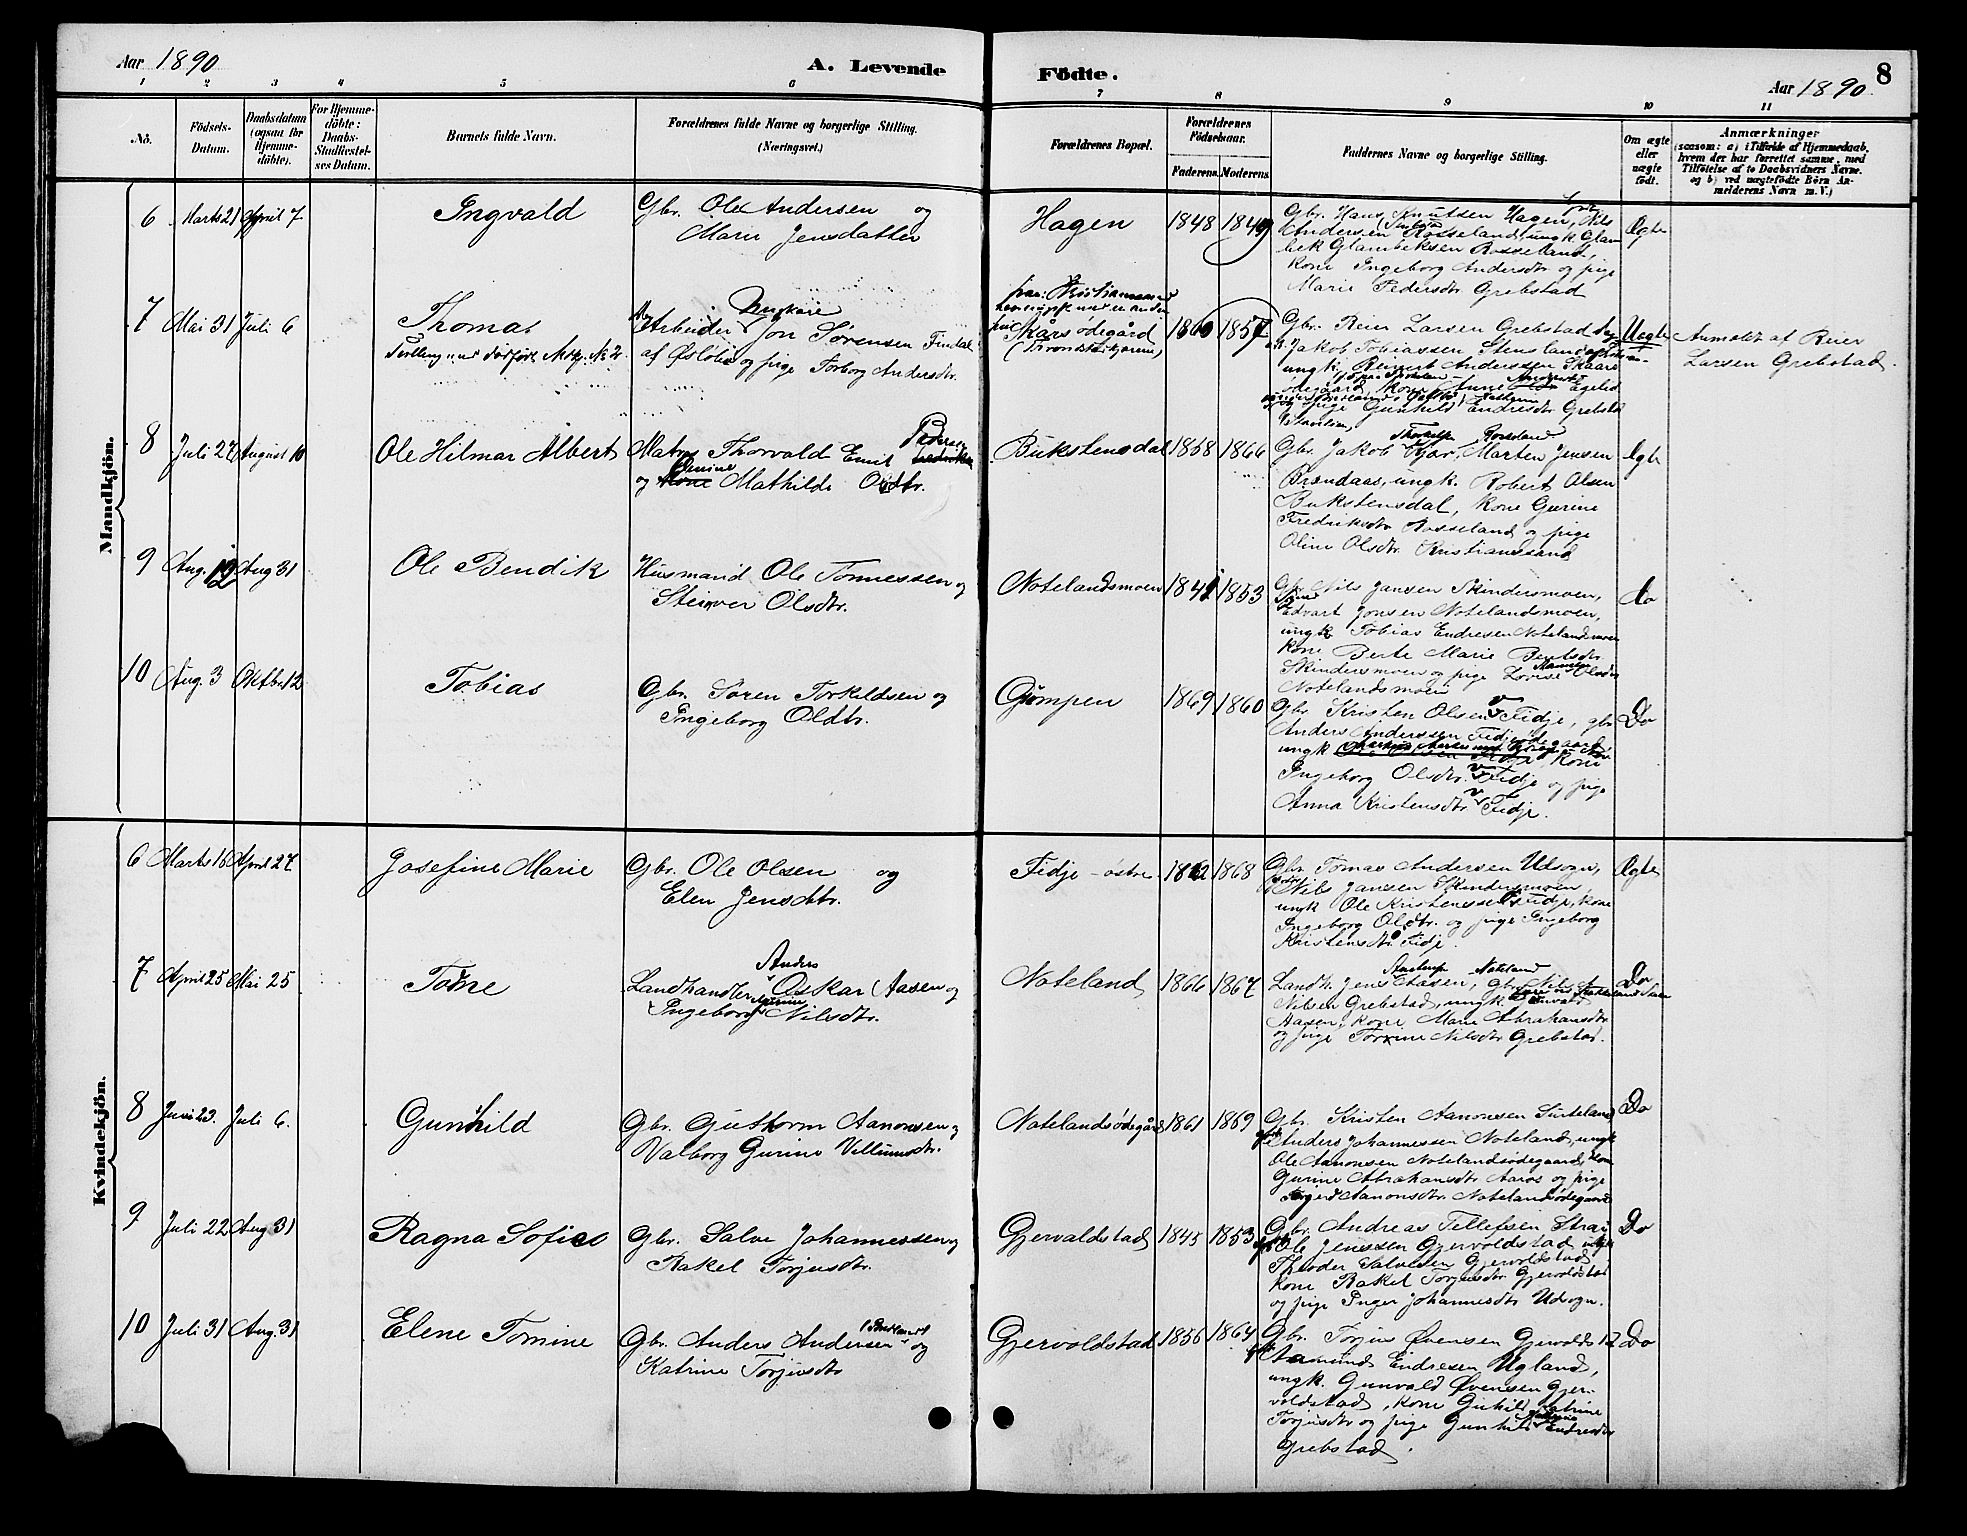 Aar 1890
A. Levende
Fødte.
Aar 1890.
8
1 2 3 4 5 6 7 8 9 10 11
No.
Födsels-
Datum.
Daabsdatum
(ogsaa for
Hjemme-
döbte).
For Hjemme-
döbte:
Daabs-
Stadfæstel-
ses Datum.
Barnets fulde Navn.
Forældrenes fulde Navne og borgerlige Stilling.
(Næringsvei.)
Forældrenes Bopæl.
Forældrenes
Födselsaar.
Faderens. Moderens.
Faddernes Navne og borgerlige Stilling.
Om ægte
eller
uægte
födt.
Anmærkninger
(saasom: a) i Tilfælde af Hjemmedaab,
hvem der har forrettet samme, med
Tilföielse af to Daabsvidners Navne.
og b) ved uægtefödte Börn An-
melderens Navn m. V.)
Mandkjön.
6 Marts 21 April 7
Ingvald
Gbr. Ole Andersen og
Marie Jensdatter
Hagen
1848 1849
Gbr. Hans Knutsen Hagen, Nils
Andersen Rosseland, ungk. Glam
bek Glambeksen Rosseland,
kone Ingeborg Andersdtr og pige
Marie Pedersdtr Grebstad
Ægte
7 Mai 31 Juli 6
Thomas
Arbeider Jon Sørensen Findal
af Øslebø og pige Torborg Andersdtr.
Skårsødegård
1860 1857
Gbr. Reier Larsen Grebstad
Jakob Tobiassen Stensland
ungk. Bernert Anderssen Skaars
ødegaard, kone Anne
og pige Gunhild Endresdtr Grebstad
Uægte
Anmeldt af Reier
Larsen Grebstad.
8 Juli 27 August 10
Ole Hilmar Albert
Pedersen
Matros Thorvald Emil
og Mathilde Olsdtr.
Bukstensdal
1858 1866
Gbr. Jakob Kjær, Marten Jensen
Brændaas, ungk. Robert Olsen
Bukstensdal, kone Gurine
Fredriksdtr Rosseland og pige
Oline Olsdtr. Kristianssand
Ægte
9 Aug. 12 Aug 31
Ole Bendik
Husmand Ole Tonnessen og
Steinver Olsdtr.
Notelandsmoen
1841 1853
Gbr. Nils Jansen Skindersmoen,
Edvart Jonsen Notelandsmoen,
ungk Tobias Endresen Notelandsmoen
kone Berte Marie Bentsdtr
Skindersmoen og pige Lovise Olsdtr
Notelandsmoen
do
10 Aug. 3 Oktbr 12
Tobias
Gbr. Søren Torkildsen og
Ingeborg Oldtr.
Gumpen
1869 1860
Gbr. Kristen Olsen Fidje, gbr
Anders Anderssen Fidjeødegaard
ungk kone
Ingeborg Olsdtr. Fidje og pige
Anna Kristensdtr Fidje.
Do
Kvindekjön.
6 Marts 16 April 27
Josefine Marie
Gbr. Ole Olsen og
Elen Jensdtr.
Fidje - östre
1862 1868
Gbr Tomas Andersen Udsogn,
Nils Jansen Skindersmoen,
ungk Ole Kristenssen Fidje, kone
Ingeborg Oldtr. og pige Ingeborg
Kristensdtr Fidje.
Ægte
7 April 25 Mai 25
Tomine
Anders
Landhandler Oskar Aasen og
Ingeborg Nilsdtr.
Noteland
1866 1867
Landh. Jens Aasen, gbr. Nils
Nilsen Grebstad, ungk.
Aasen, kone Marie Abrahamsdtr
og pige Tomine Nilsdtr Grebstad.
Do
8 Juni 23. Juli 6.
Gunhild
Gbr. Guttorm Aanonsen og
Valborg Gurine Villumsdtr.
Notelandsødegård
1861 1869
Gbr. Kristen Aanonsen Sinteland,
Anders Johannessen Noteland, ungk
Ole Aanonsen Notelandsødegaard, kone
Gurine Abrahamsdtr Aaros og pige
Torgerd Aanonsdtr Notelandsødegaard
Do
9 Juli 22 Aug 31
Ragna Sofie
Gbr. Salve Johannessen og
Rakel Torjusdtr.
Gjervaldstad
1845 1853
Gbr. Andreas Tellefsen Strai
Ole Jenssen Gjervoldstad, ungk
Theodor Salvesen Gjervoldstad
kone Rakel Torjusdtr Gjervoldstad
og pige Inger Johannesdtr Udsogn.
Do
10 Juli 31 Aug. 31
Elene Tomine
Gbr. Anders Andersen og
Katrine Torjusdtr
Gjervoldstad
1856 1864
Gbr. Torjus Øvensen Gjervoldstad
Aamund Endresen Ugland,
ungk. Gunvald Øvensen Gjer-
voldstad, kone Guhild Katrine
Torjusdtr og pige Gunhild Endresdtr
Grebstad.
Do